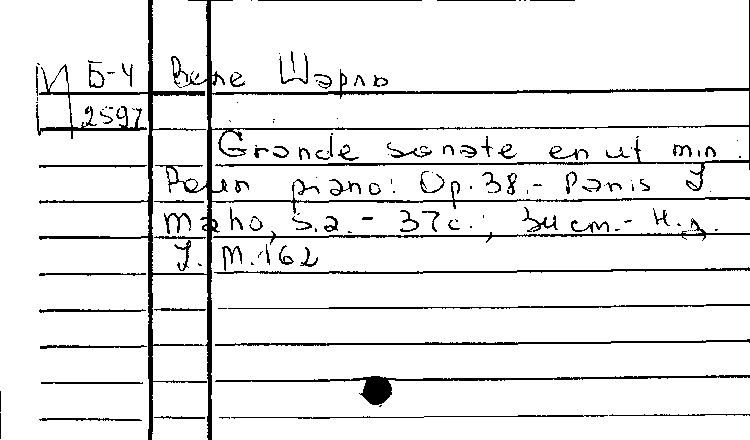 И Б-4 Веле Шарль
2597
Grande sonate en ut min.
Pour piano: Op. 38.- Paris J.
Maho, s.a. - 37с.; 34 cm.- Н.д.
J. M. 162